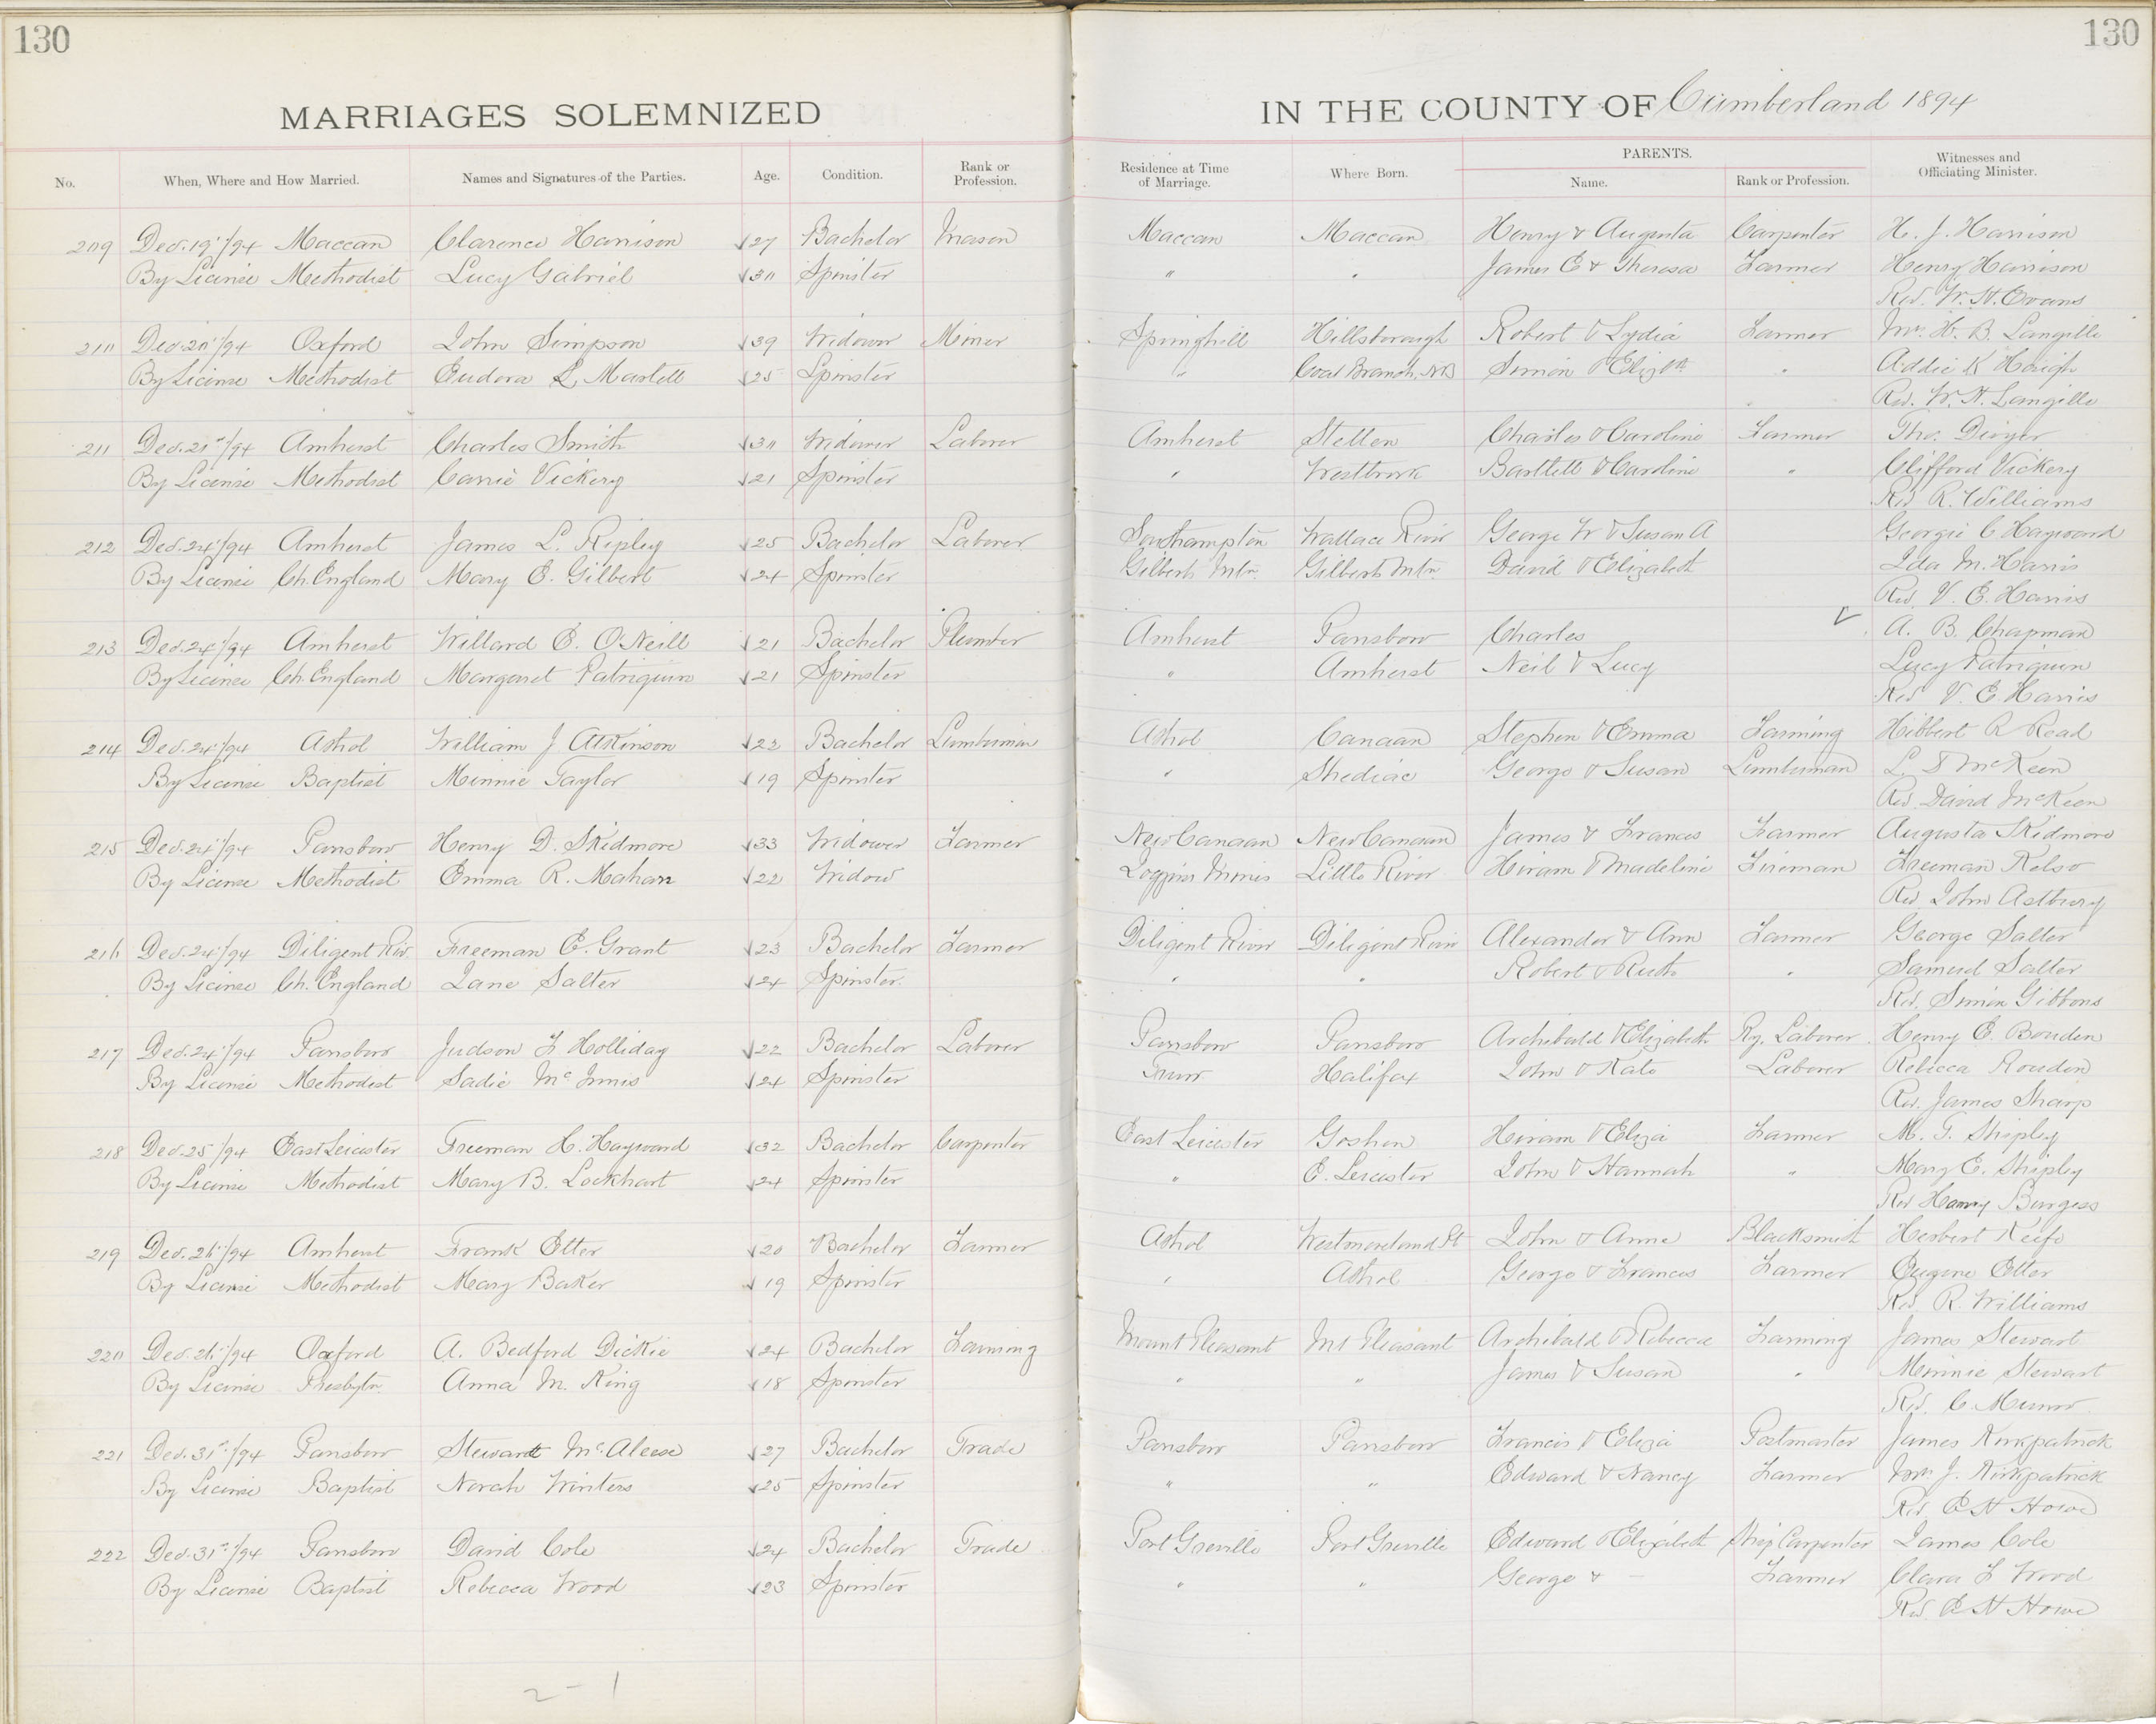 130
130
MARRIAGES SOLEMNIZED
IN THE COUNTY OF Cumberland 1894
No. When, Where and How Married. Names and Signatures of the Parties. Age. Condition. Rank or Profession. Residence at Time of Marriage. Where Born. PARENTS. Name. Rank or Profession. Witnesses and Officiating Minister.
209 Dec. 19/94 Maccan Clarence Harrison 27 Bachelor Mason Maccan Maccan Henry & Augusta Carpenter H. J. Harrison
By License Methodist Lucy Gabriel 30 Spinster " " James E & Theresa Farmer Henry Harrison
Rev. W. H. Evans
210 Dec. 20/94 Oxford John Simpson 39 Widower Miner Springhill Hillsborough Robert & Lydia Farmer Mrs. H. B. Langille
By License Methodist Eudora L. Martell 25 Spinster " Coal Branch, NB Simon & Elizth " Addie K Haigh
Rev. W. N. Langille
211 Dec. 21st/94 Amherst Charles Smith 30 Widower Laborer Amherst Charles & Caroline Farmer Tho. Dwyer
By License Methodist Carrie Vickery 21 Spinster " Westbrook Bartlett & Caroline " Clifford Vickery
Rev R. Williams
212 Dec. 24/94 Amherst James L. Ripley 25 Bachelor Laborer Southampton Wallace River George W & Susan A Georgie C Hayward
By License Ch. England Mary E. Gilbert 24 Spinster Gilberts Mtn. Gilberts Mtn. David & Elizabeth Ida M. Harris
Rev. V. E. Harris
213 Dec. 24/94 Amherst Willard E. O'Neill 21 Bachelor Plumber Amherst Parrsboro Charles A. B. Chapman
By License Ch. England Margaret Patriquin 21 Spinster " Amherst Neil & Lucy Lucy Patriquin
Rev V. E Harris
214 Dec. 24/94 Athol William J Atkinson 22 Bachelor Lumberman Athol Canaan Stephen & Emma Farming Hibbert R Read
By License Baptist Minnie Taylor 19 Spinster " Shediac George & Susan Lumberman L. S McKeen
Rev. David McKeen
215 Dec. 24/94 Parrsboro Henry D. Skidmore 33 Widower Farmer New Canaan New Canaan James & Frances Farmer Augusta Skidmore
By License Methodist Emma R. Mahan 22 Widow Joggins Mines Little River Hiram & Madeline Fireman Freeman Kelso
Rev John Astbury
216 Dec. 24/94 Diligent Riv. Freeman E. Grant 23 Bachelor Farmer Diligent River Diligent River Alexander & Ann Farmer George Salter
By License Ch. England Jane Salter 24 Spinster. " " Robert & Ruth " Samuel Salter
Rev. Simon Gibbons
217 Dec. 24/94 Parrsboro Judson F Holliday 22 Bachelor Laborer Parrsboro Parrsboro Archibald & Elizabeth Ry. Laborer Henry E. Bouden
By License Methodist Sadie McInnis 24 Spinster Truro Halifax John & Kate Laborer Rebecca Rouden
Rev. James Sharp
218 Dec. 25/94 East Leicester Freeman H. Hayward 32 Bachelor Carpenter East Leicester Goshen Hiram & Eliza Farmer M. T. Shipley
By License Methodist Mary B. Lockhart 24 Spinster " E. Leicester John & Hannah " Mary E. Shipley
Rev Henry Burgess
219 Dec. 26/94 Amherst Frank Etter 20 Bachelor Farmer Athol Westmoreland Pt John & Anne Blacksmith Herbert Keefe
By License Methodist Mary Baker 19 Spinster " Athol George & Frances Farmer Eugene Etter
Rev. R. Williams
220 Dec. 26/94 Oxford A. Bedford Dickie 24 Bachelor Farming Mount Pleasant Mt Pleasant Archibald & Rebecca Farming James Stewart
By License Presbytn Anna M. King 18 Spinster " " James & Susan " Minnie Stewart
Rev. C. Munro
221 Dec. 31st/94 Parrsboro Stewart McAleese 27 Bachelor Trade Parrsboro Parrsboro Francis & Eliza Postmaster James Kirkpatrick
By License Baptist Norah Winters 25 Spinster " " Edward & Nancy Farmer Wm J. Kirkpatrick
Rev E H Howe
222 Dec. 31st/94 Parrsboro David Cole 24 Bachelor Trade Port Greville Port Greville Edward & Elizabeth Ship Carpenter James Cole
By License Baptist Rebecca Wood 23 Spinster " " George & — Farmer Clara F Wood
Rev E H Howe
2 - 1